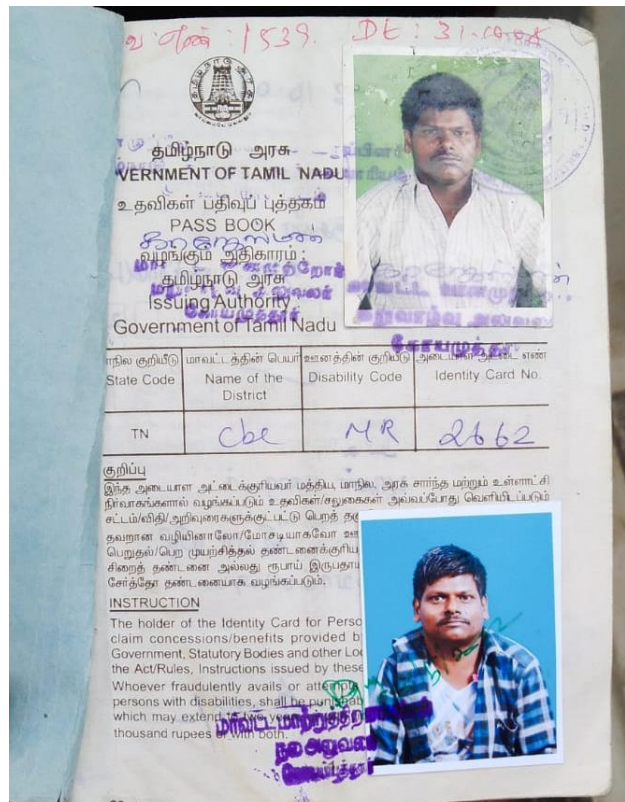 வ. எண் : 1539. Dt : 31.
தமிழ்நாடு அரசு
VERNMENT OF TAMIL NADU
உதவிகள் பதிவுப் புத்தகம்
PASS BOOK
வழங்கும் அதிகாரம் :
தமிழ்நாடு அரசு
Issuing Authority
Government of Tamil Nadu
கோயமுத்தூர்
மறுவாழ்வு அலுவலர்
கோயமுத்தூர்
ாநில குறியீடு மாவட்டத்தின் பெயர் ஊனத்தின் குறியீடு அடையாள அட்டை எண்
State Code Name of the District Disability Code Identity Card No.
TN cbe MR 2662
குறிப்பு
இந்த அடையாள அட்டைக்குரியவர் மத்திய, மாநில, அரசு சார்ந்த மற்றும் உள்ளாட்சி
நிர்வாகங்களால் வழங்கப்படும் உதவிகள்/சலுகைகள் அவ்வப்போது வெளியிடப்படும்
சட்டம்/விதி/அறிவுரைகளுக்குட்பட்டு பெறத்
தவறான வழியினாலோ/மோசடியாகவோ
பெறுதல்/பெற முயற்சித்தல் தண்டனைக்குரிய
சிறைத் தண்டனை அல்லது ரூபாய் இருபதா
சேர்த்தோ தண்டனையாக வழங்கப்படும்.
INSTRUCTION
The holder of the Identity Card for Perso
claim concessions/benefits provided b
Government, Statutory Bodies and other Loc
the Act/Rules, Instructions issued by these
Whoever fraudulently avails or attempt
persons with disabilities, shall be punishab
which may extend to two years
thousand rupees or with both.
மாவட்ட மாற்றுத்திறனாளிகள்
நல அலுவலர்
கோயமுத்தூர்